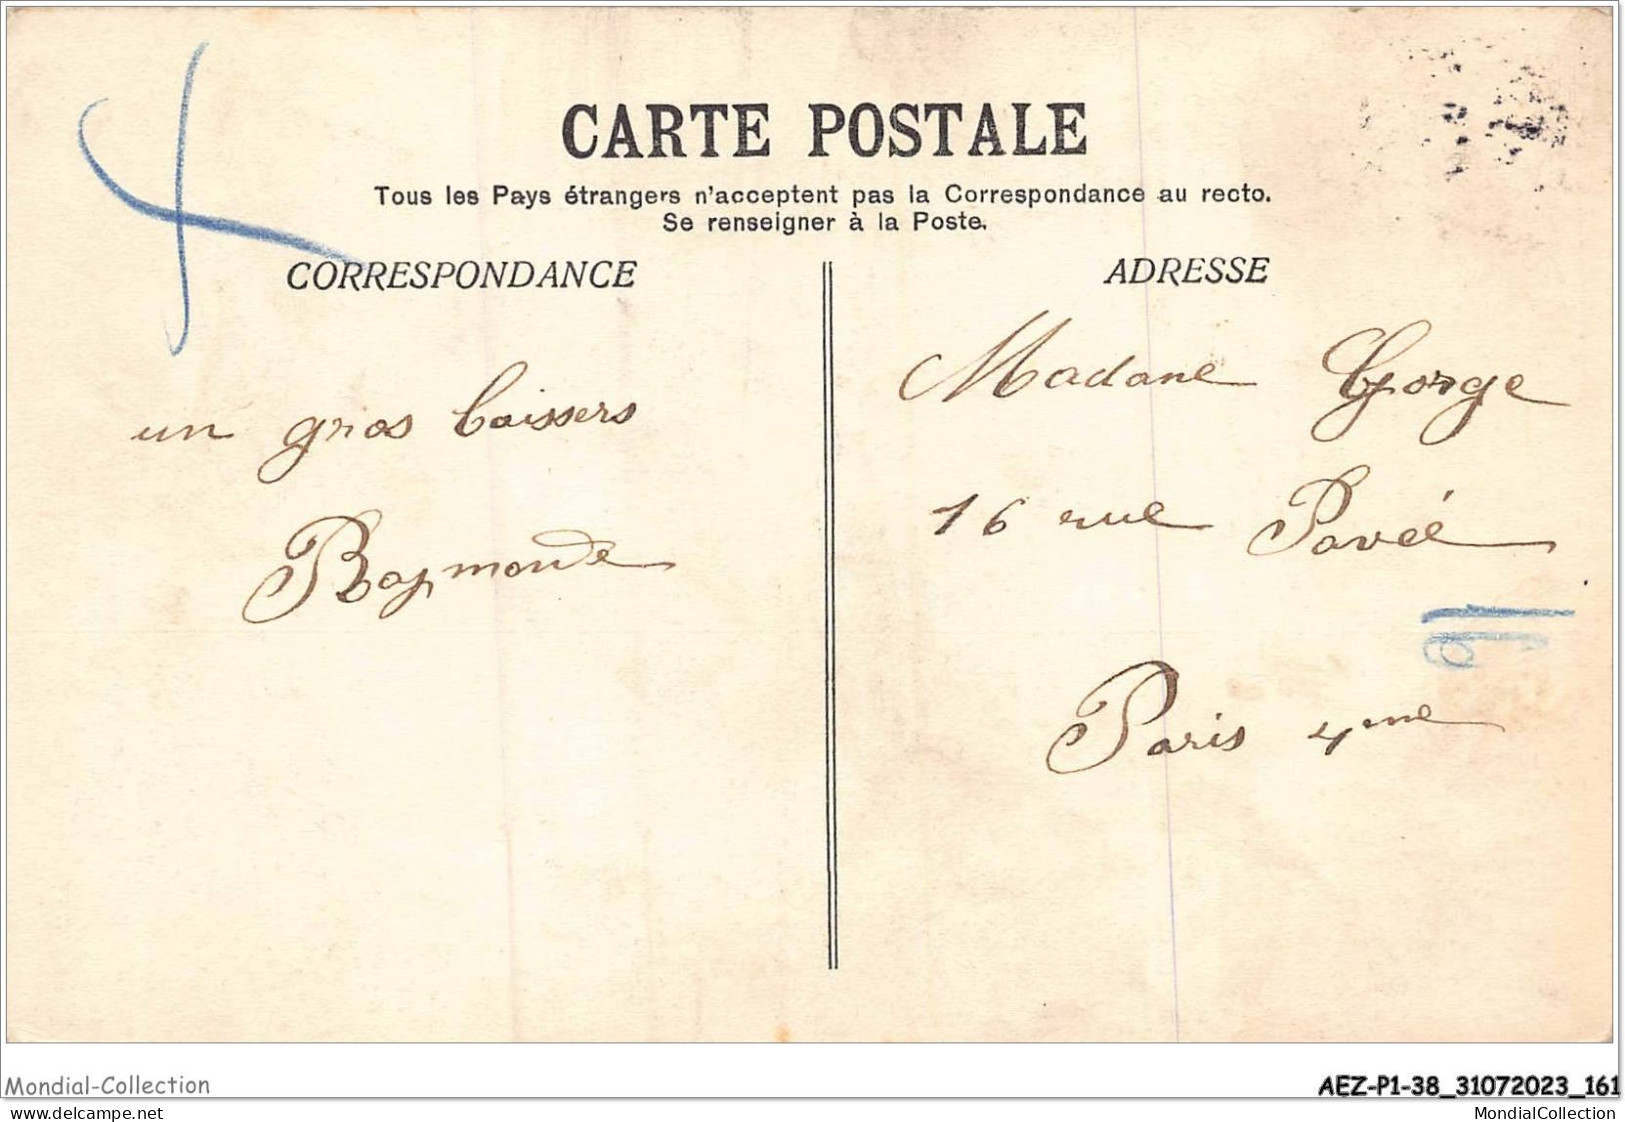 CARTE POSTALE
Tous les Pays étrangers n'acceptent pas la Correspondance au recto.
Se renseigner à la Poste.
CORRESPONDANCE
un gros baissers
Raymonde
ADRESSE
Madame Gorge
16 rue Pavée
Paris 4me
91
Mondial-Collection
AEZ-P1-38_31072023_161
MondialCollection